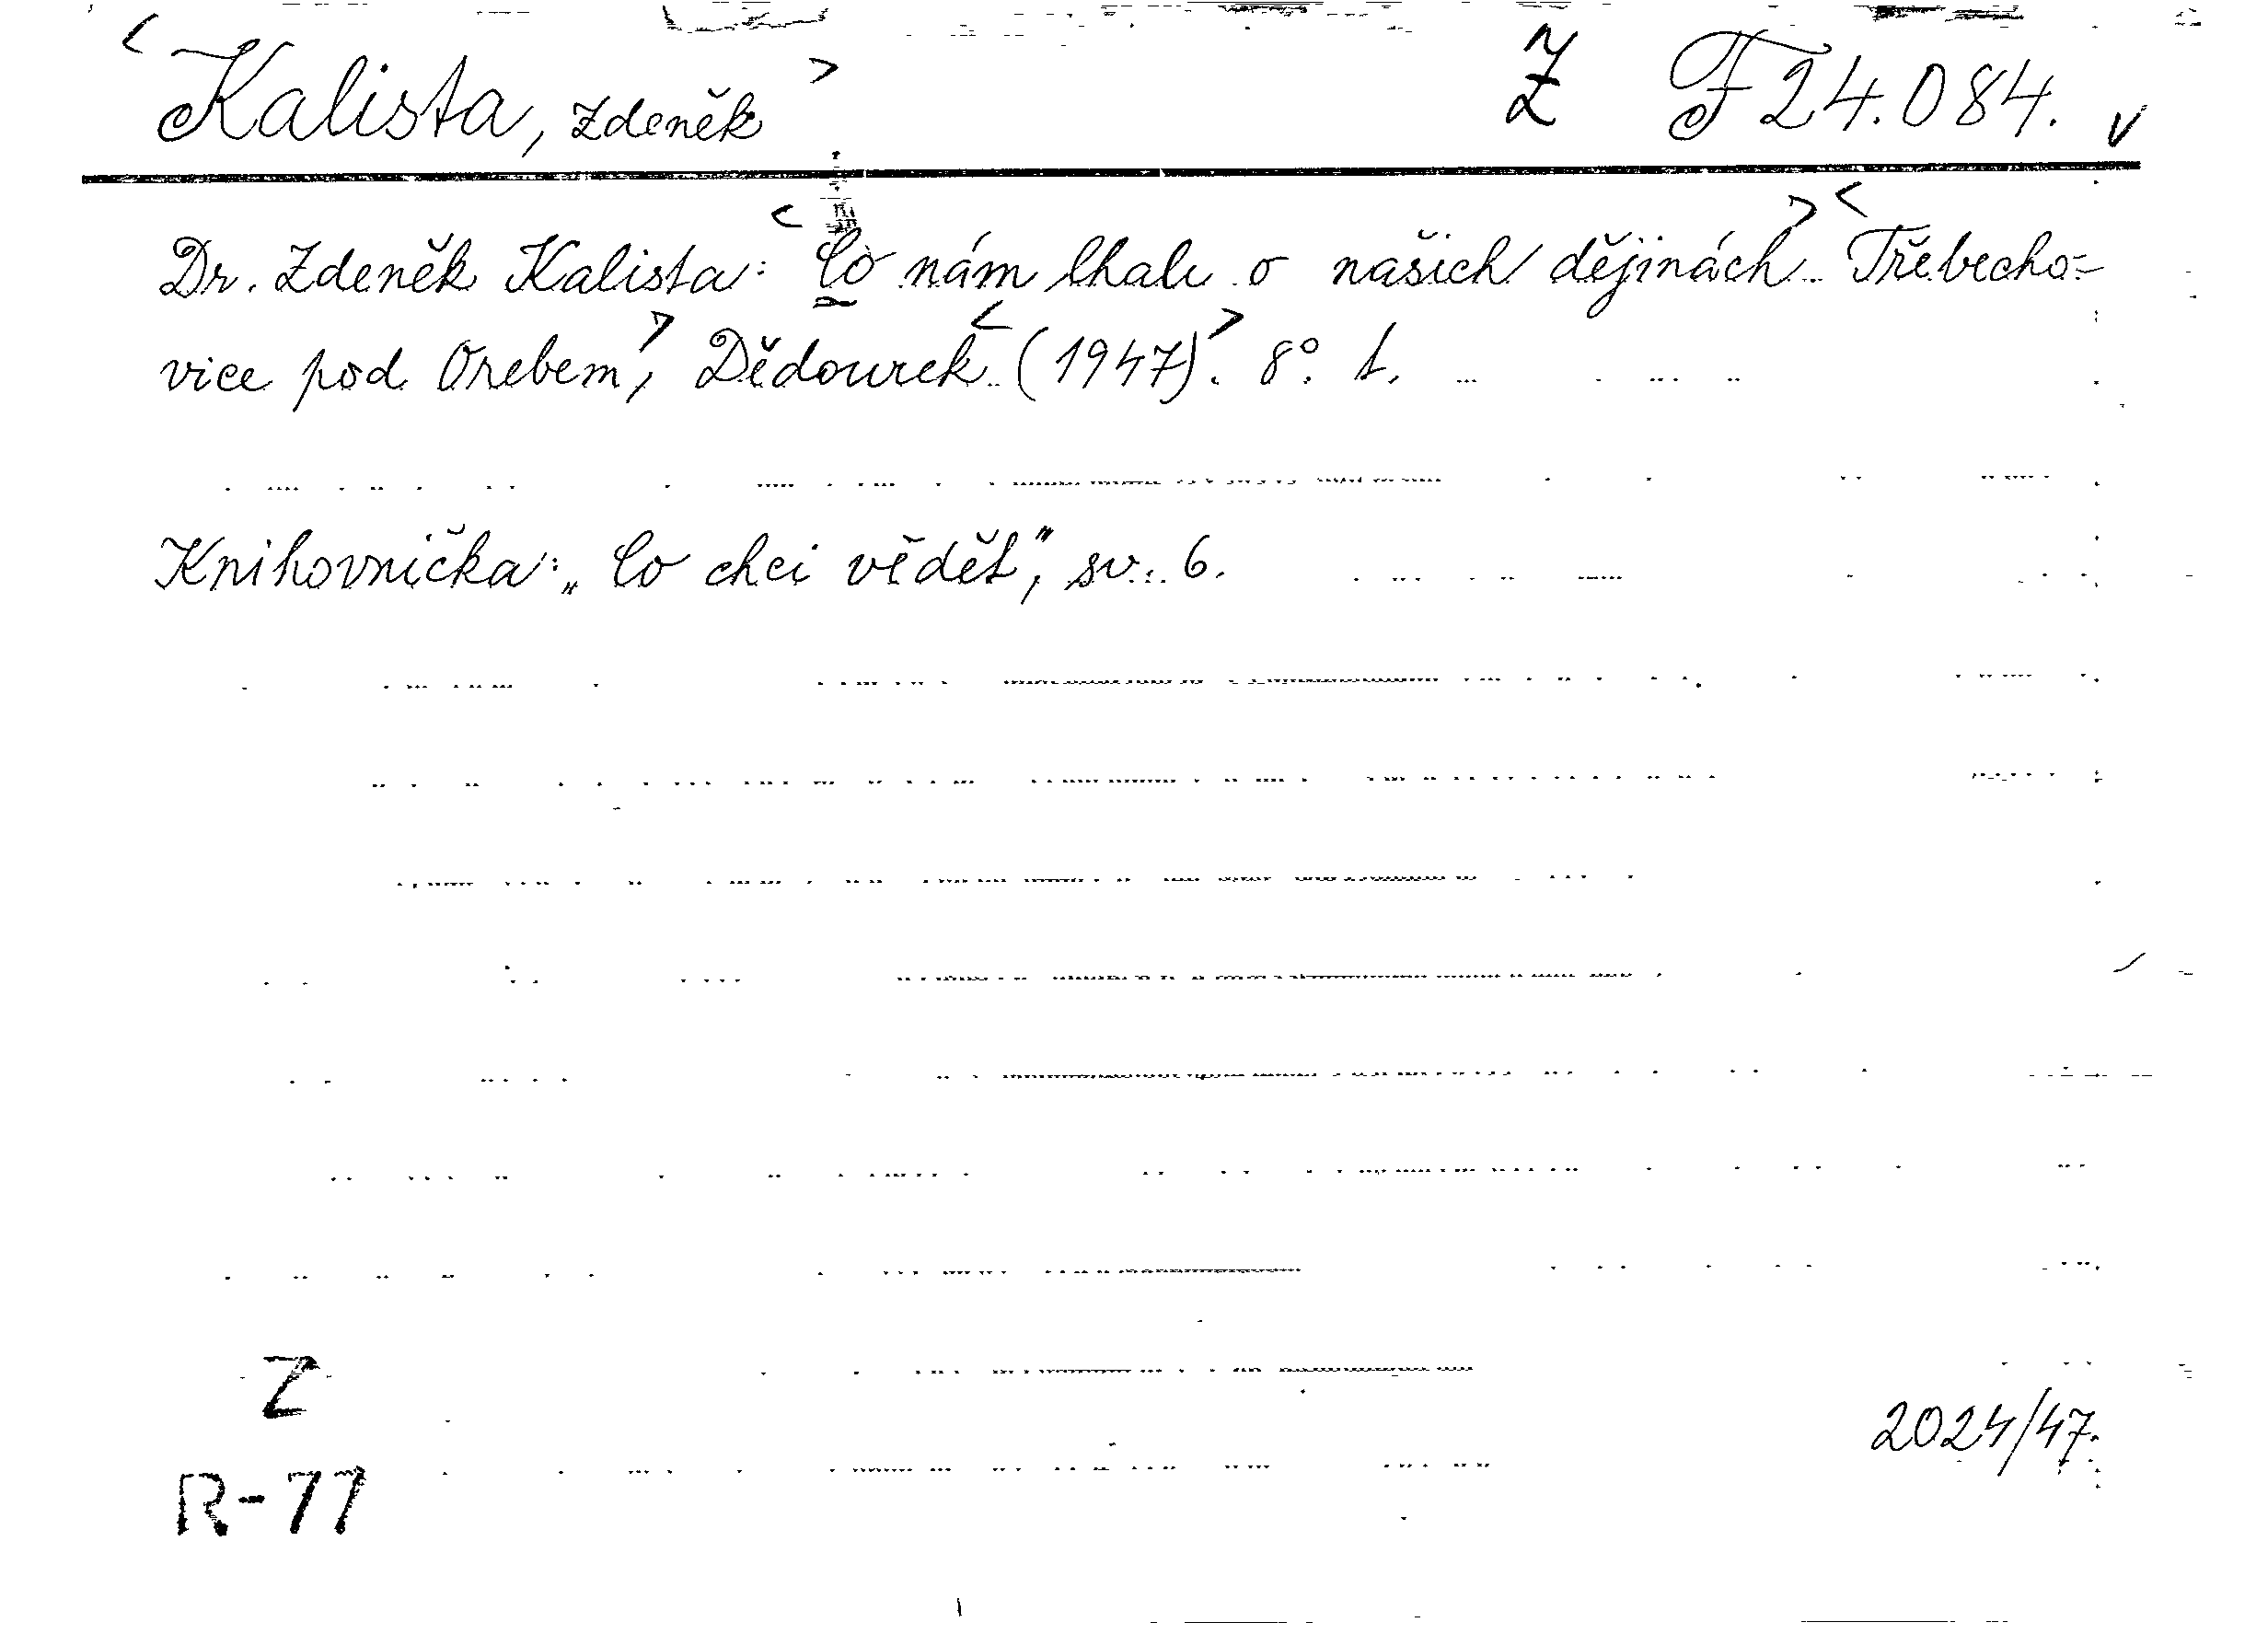 < Kalista, Zdeněk > Z F 24.084. v
Dr. Zdeněk Kalista: < Co nám lhali o našich dějinách > . < Třebecho-
vice pod Orebem, > Dědourek < (1947) > . 8°. 1.
Knihovnička: „Co chci vědět“, sv. 6.
Z
2024/47.
R-77